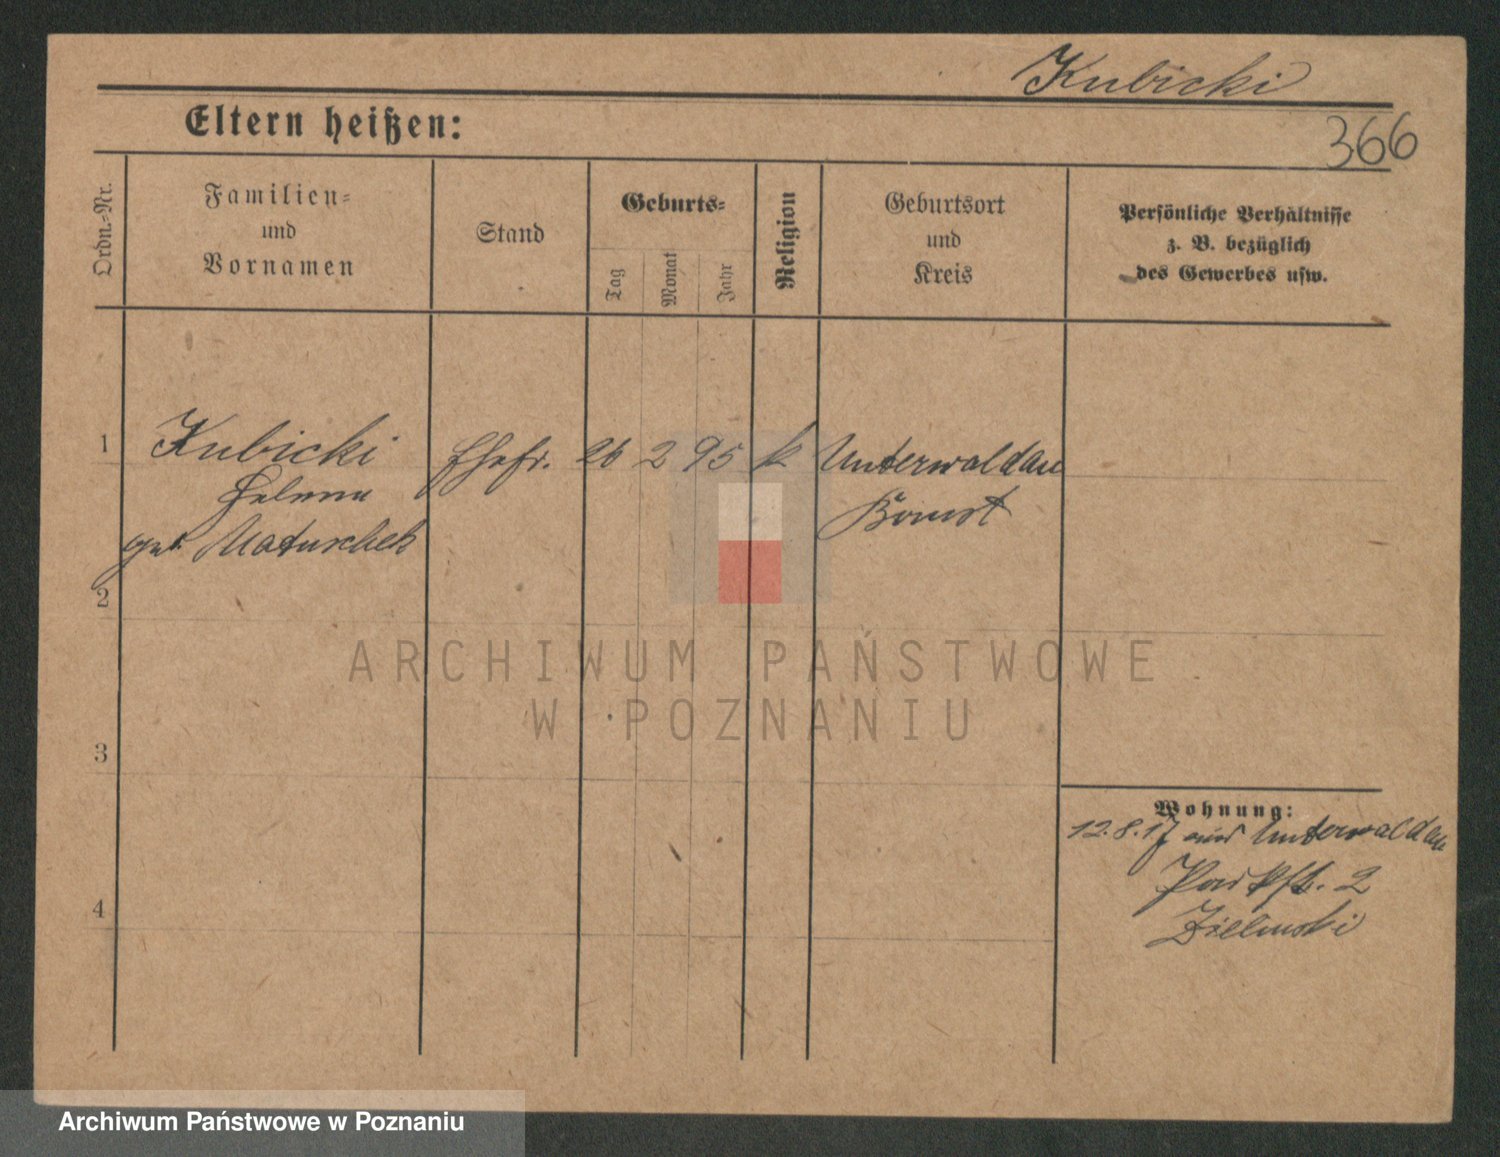 Kubicki
366
Eltern heißen:
Ordn.-Nr.
Familien-
und
Vornamen
Stand
Geburts-
Tag
Monat
Jahr
Religion
Geburtsort
und
Kreis
Persönliche Verhältnisse
z. B. bezüglich
des Gewerbes usw.
1
Kubicki
Helene
geb. Matuschek
Ehefr.
26
2
95
k
Unterwaldau
Bomst
2
3
4
Wohnung:
12.8.17 aus Unterwaldau
Parkstr. 2
Zielinski
ARCHIWUM PAŃSTWOWE
W POZNANIU
Archiwum Państwowe w Poznaniu